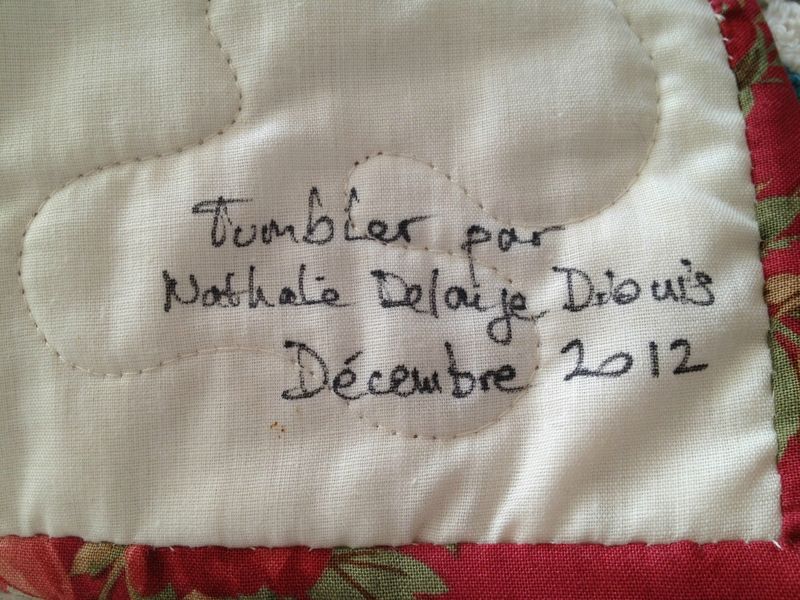 Tumbler par
Nathalie Delaye Driouis
Décembre 2012